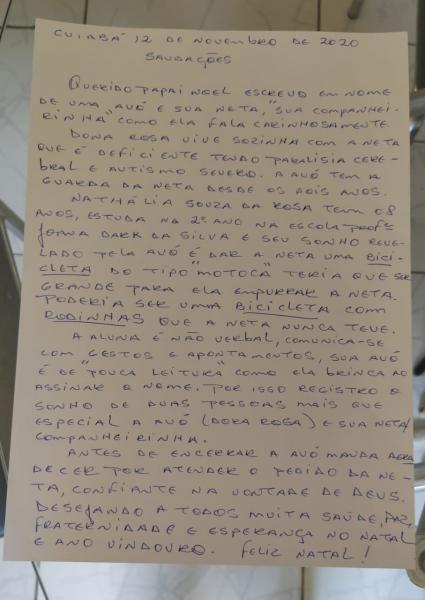 CUIABÁ 12 DE NOVEMBRO DE 2020
SAUDAÇÕES
QUERIDO PAPAI NOEL ESCREVO EM NOME
DE UMA "AVÓ E SUA NETA, "SUA COMPANHEI-
RINHA" COMO ELA FALA CARINHOSAMENTE.
DONA ROSA VIVE SOZINHA COM A NETA
QUE É DEFICIENTE TENDO PARALISIA CERE-
BRAL E AUTISMO SEVERO. A AVÓ TEM A
GUARDA DA NETA DESDE OS DOIS ANOS.
NATHÁLIA SOUZA DA ROSA TEM 08
ANOS, ESTUDA NO 2º ANO NA ESCOLA PROFª
JOANA DARK DA SILVA E SEU SONHO REVE-
LADO PELA AVÓ É DAR A NETA UMA BICI-
CLETA DO TIPO "MOTOCA" TERIA QUE SER
GRANDE PARA ELA EMPURRAR A NETA.
PODERIA SER UMA BICICLETA COM
RODINHAS QUE A NETA NUNCA TEVE.
A ALUNA É NÃO VERBAL, COMUNICA-SE
COM GESTOS E APONTAMENTOS, SUA AVÓ
É DE "POUCA LEITURA" COMO ELA BRINCA AO
ASSINAR O NOME. POR ISSO REGISTRO O
SONHO DE DUAS PESSOAS MAIS QUE
ESPECIAL A AVÓ (DORA ROSA) E SUA NETA/
COMPANHEIRINHA.
ANTES DE ENCERRAR A AVÓ MANDA AGRA
DECER POR ATENDER O PEDIDO DA NE-
TA, CONFIANTE NA VONTADE DE DEUS.
DESEJANDO A TODOS MUITA SAÚDE, PAZ,
FRATERNIDADE E ESPERANÇA NO NATAL
E ANO VINDOURO. FELIZ NATAL!